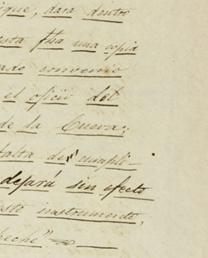 ique, dara dentro
esta fha una copia
ado convenio
el oficio del
de la Cueva;
falta de cumpli-
dejará sin efecto
este instrumento,
peche"